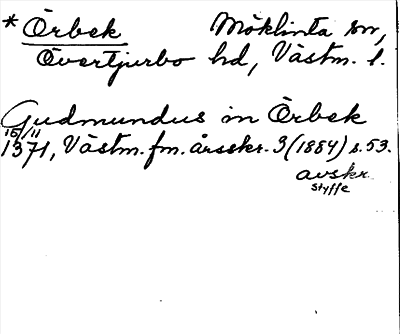 * Örbek Möklinta sn,
Övertjurbo hd, Västm. l.
Gudmundus in Örbek
15/11
1371, Västm. fm. årsskr. 3 (1884) s. 53.
avskr.
Styffe